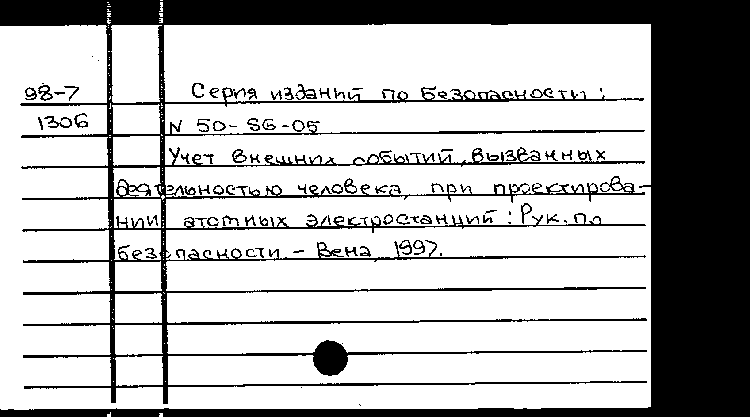 98-7 Серия изданий по безопасности:
1306 N 50-SG-05
Учет внешних событий, вызванных
деятельностью человека, при проектирова-
нии атомных электростанций: Рук. по
безопасности. - Вена, 1997.